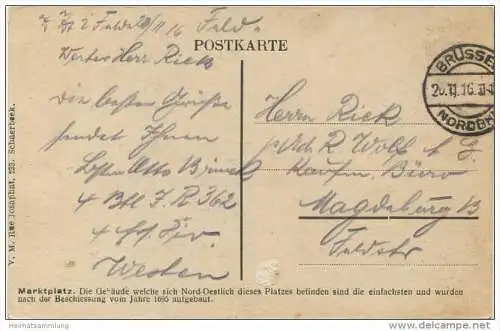 i Felde 20/11 16 Feld
POSTKARTE
BRÜSSEL
20.11.16.
NORDBHF
Werter Herr Rieck
Die besten Grüße
sendet Ihnen
Otto
4 Btl J. R 362
4 Div.
Westen
Herrn Rieck
R Wolf A G.
Kaufm. Büro
Magdeburg B
Feldstr
V. M. Rue Josaphat, 223. Schaerbeek.
Marktplatz. Die Gebäude welche sich Nord-Oestlich dieses Platzes befinden sind die einfachsten und wurden
nach der Beschiessung vom Jahre 1695 aufgebaut.
Heimatsammlung